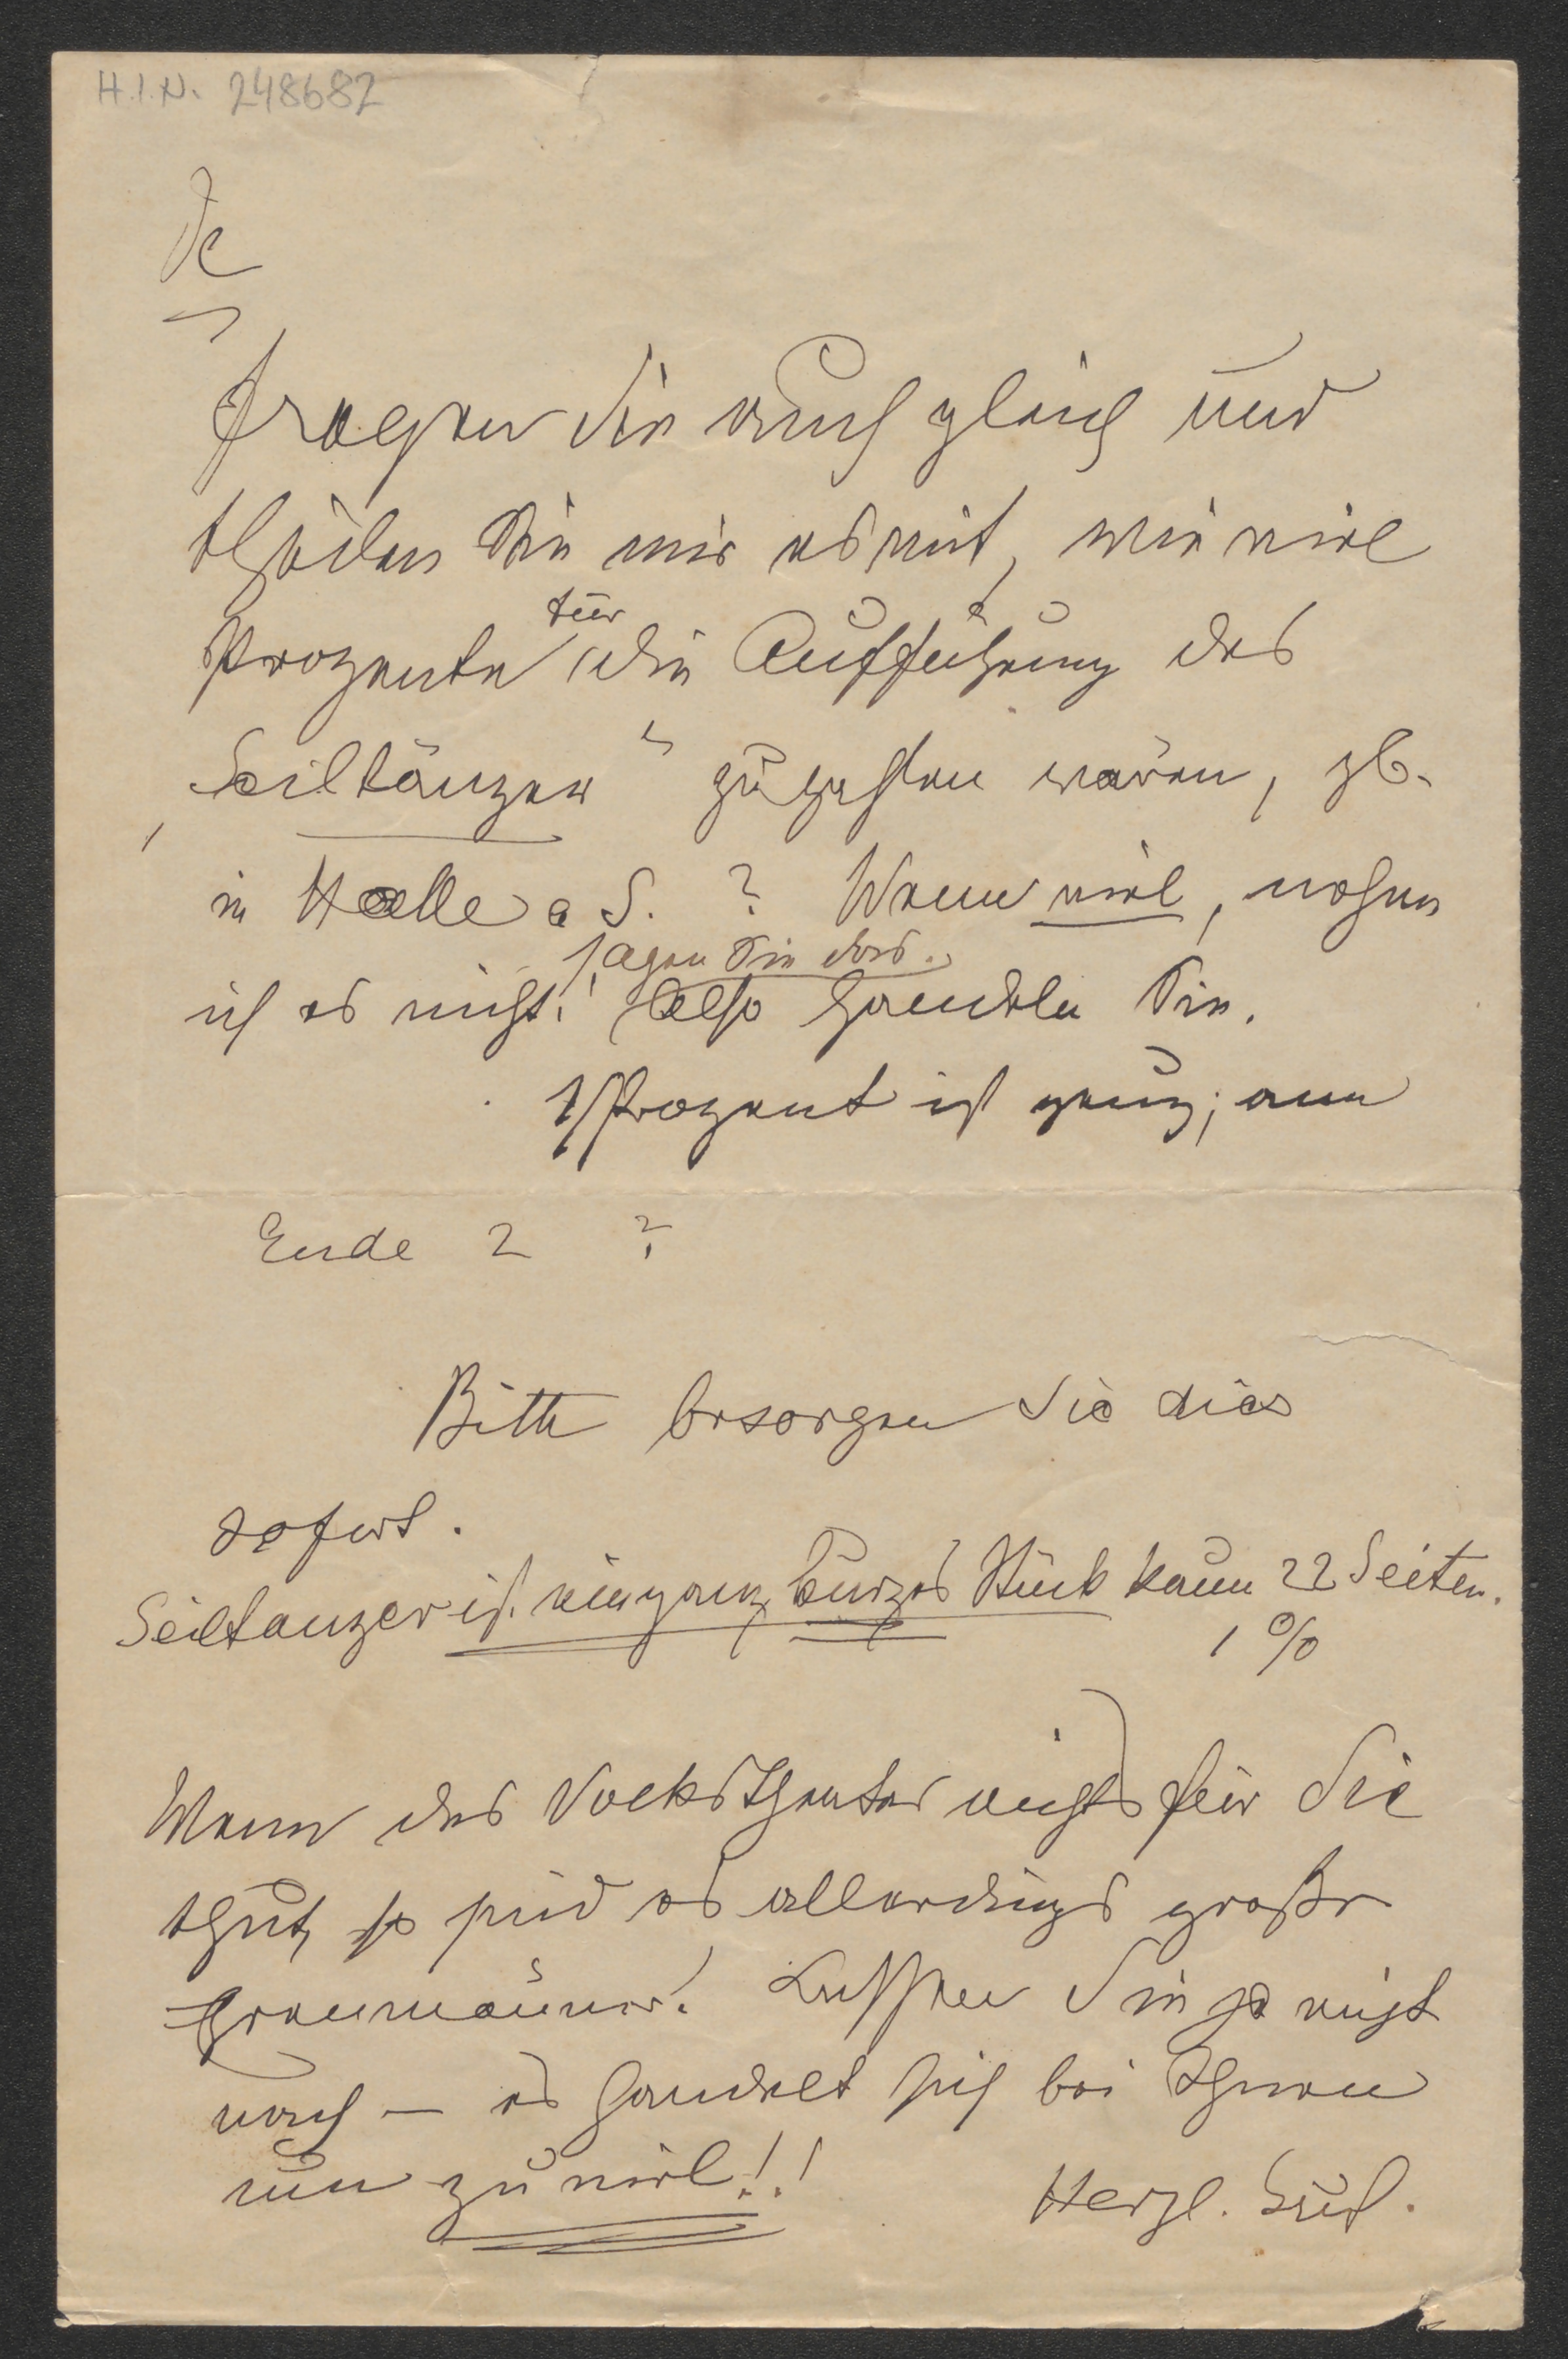 H.I.N. 248682
Fragen Sie auch gleich und
theilen Sie mir es mit, wie viel
für
Prozente die Aufführung des
„Seiltänzer“ zu geben wären, zb.
in Halle a S. ? Wenn viel, nehme
sagen Sie dies.
ich es nicht! Also handeln Sie.
1 Prozent ist genug; am
Ende 2 ?
Bitte besorgen Sie dies
sofort.
Seiltanzer ist ein ganz kurzes Stück kaum 22 Seiten.
1 %
Wenn das Volkstheater nichts für Sie
thut, so sind es allerdings große
Lassen Sie ja nicht
nach — es handelt sich bei Ihnen
um zu viel!!
Herzl. Gruß.